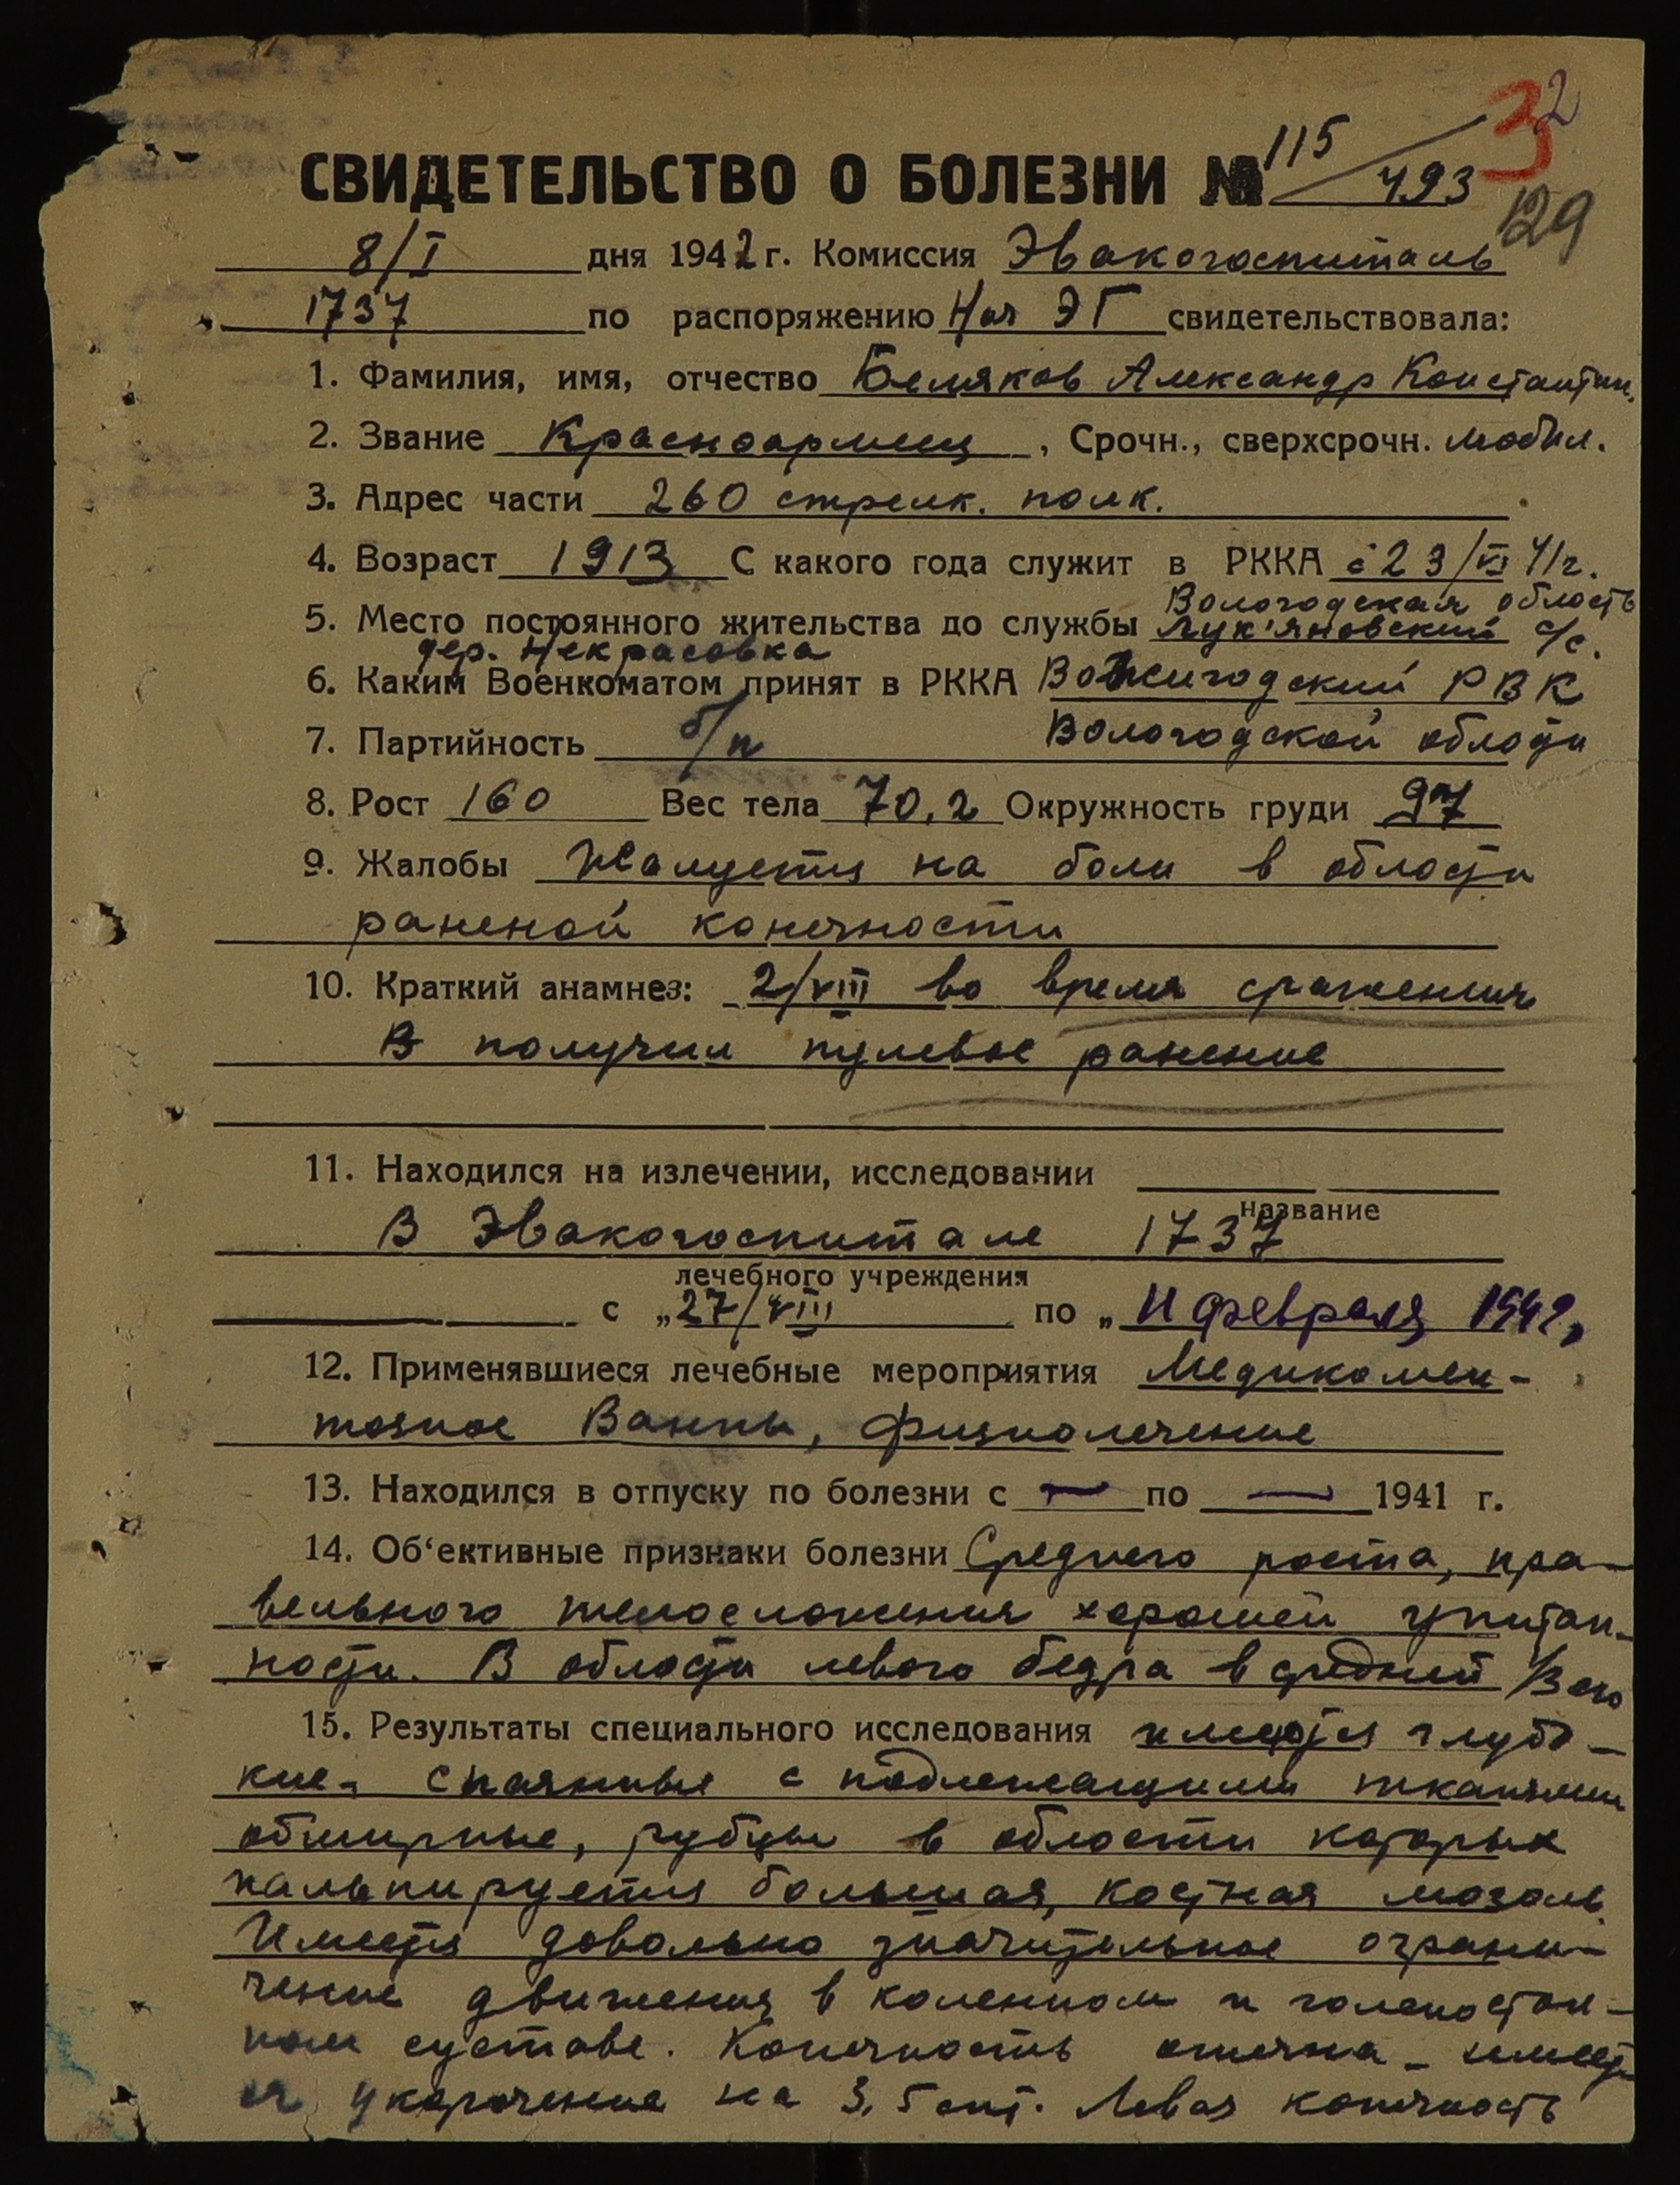 32
СВИДЕТЕЛЬСТВО О БОЛЕЗНИ № 115/493
129
8/I дня 1942 г. Комиссия Эвакогоспиталь
1737 по распоряжению Нач ЭГ свидетельствовала:
1. Фамилия, имя, отчество Беляков Александр Константин.
2. Звание Красноармеец, Срочн., сверхсрочн. мобил.
3. Адрес части 260 стрелк. полк.
4. Возраст 1913 С какого года служит в РККА с 23/VI 41г.
Вологодская область
5. Место постоянного жительства до службы Лук'яновский с/с.
дер. Некрасовка
6. Каким Военкоматом принят в РККА Вожегодский РВК
7. Партийность б/п Вологодской области
8. Рост 160 Вес тела 70,2 Окружность груди 97
9. Жалобы Жалуется на боли в области
раненой конечности
10. Краткий анамнез: 2/VIII во время сражения
В получил пулевое ранение
11. Находился на излечении, исследовании
название
В Эвакогоспитале 1737
лечебного учреждения
с „27/VIII по „11 февраля 1942,
12. Применявшиеся лечебные мероприятия Медикамен-
тозное Ванны, физиолечение
13. Находился в отпуску по болезни с — по — 1941 г.
14. Об‘ективные признаки болезни Среднего роста, пра-
вельного телосложения хорошей упитан-
ности. В области левого бедра в средней /3 его
15. Результаты специального исследования имеются глубо-
кие, спаянные с подлежащими тканями
обширные, рубцы в области которых
пальпируется большая, костная мозоль.
Имеется довольно значительное ограни-
чение движения в коленном и голеностоп-
ном суставе. Конечность отечна - имеет-
ся укорочение на 3,5 снт. Левая конечность